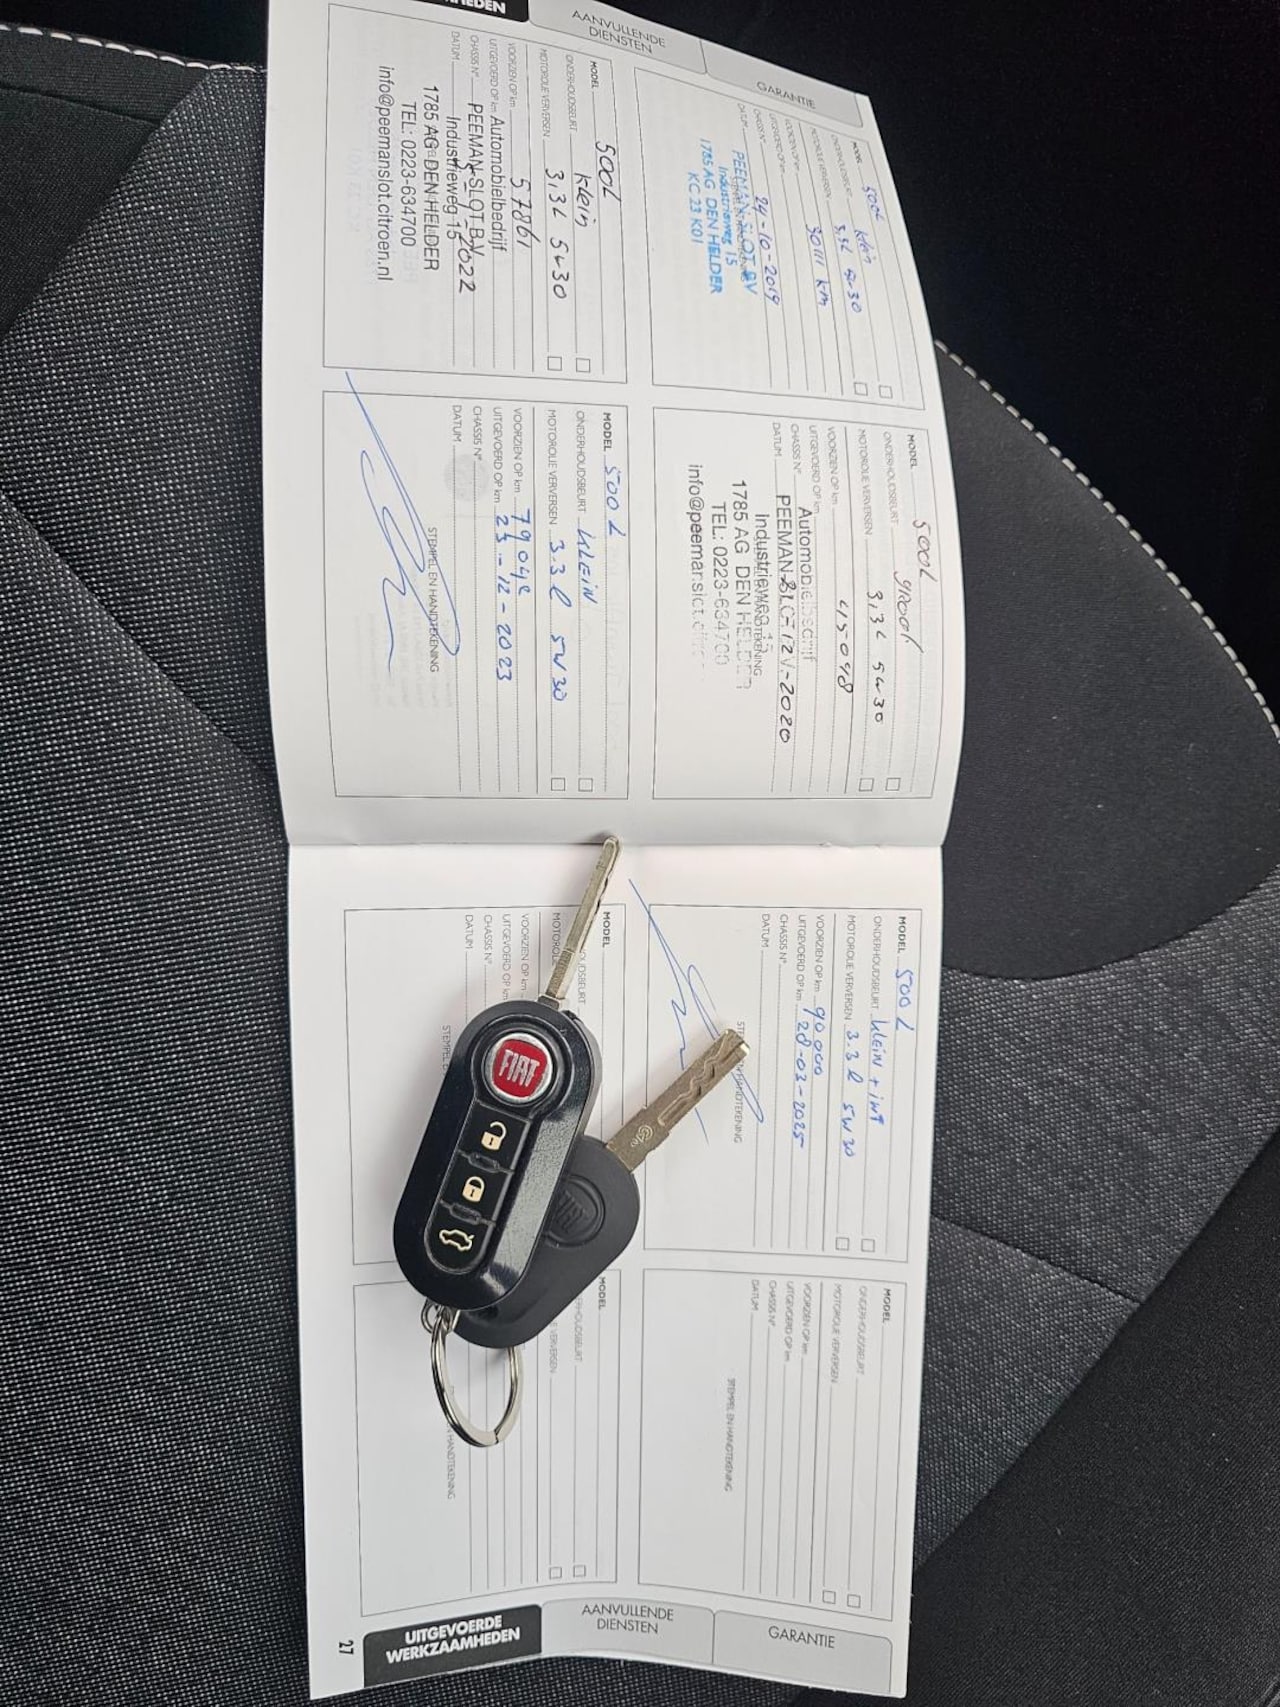 HEDEN
AANVULLENDE
DIENSTEN
GARANTIE
MODEL 500L
ONDERHOUDSBEURT klein
MOTOROLIE VERVERSEN 3,3L 5w30
VOORZIEN OP km 30111 km
UITGEVOERD OP km
CHASSIS N°
DATUM 24-10-2019
PEEMAN-SLOT BV
Industrieweg 15
1785 AG DEN HELDER
KC 23 K01
MODEL 500L
ONDERHOUDSBEURT groot
MOTOROLIE VERVERSEN 3,3L 5w30
VOORZIEN OP km 45048
UITGEVOERD OP km Automobielbedrijf
CHASSIS N° PEEMAN-SLOT BV
DATUM 2020
Industrieweg 15
1785 AG DEN HELDER
TEL: 0223-634700
MODEL 500L
ONDERHOUDSBEURT klein
MOTOROLIE VERVERSEN 3,3L 5w30
VOORZIEN OP km 57861
UITGEVOERD OP km Automobielbedrijf
CHASSIS N° PEEMAN-SLOT B.V.
DATUM 2022
Industrieweg 15
1785 AG DEN HELDER
TEL: 0223-634700
info@peemanslot.citroen.nl
MODEL 500L
ONDERHOUDSBEURT KLEIN
MOTOROLIE VERVERSEN 3.3l 5W30
VOORZIEN OP km 79042
UITGEVOERD OP km 23-12-2023
CHASSIS N°
DATUM
STEMPEL EN HANDTEKENING
MODEL 500L
ONDERHOUDSBEURT KLEIN + int
MOTOROLIE VERVERSEN 3.3l 5W30
VOORZIEN OP km 90000
UITGEVOERD OP km 28-03-2025
CHASSIS N°
DATUM
STEMPEL EN HANDTEKENING
MODEL
ONDERHOUDSBEURT
MOTOROLIE VERVERSEN
VOORZIEN OP km
UITGEVOERD OP km
CHASSIS N°
DATUM
STEMPEL EN HANDTEKENING
MODEL
OUDSBEURT
MOTOROL
VOORZIEN OP km
UITGEVOERD OP km
CHASSIS N°
DATUM
STEMPEL E
MODEL
ERHOUDSBEURT
VERVERSEN
N HANDTEKENING
FIAT
FIAT
UITGEVOERDE
WERKZAAMHEDEN
AANVULLENDE
DIENSTEN
GARANTIE
27